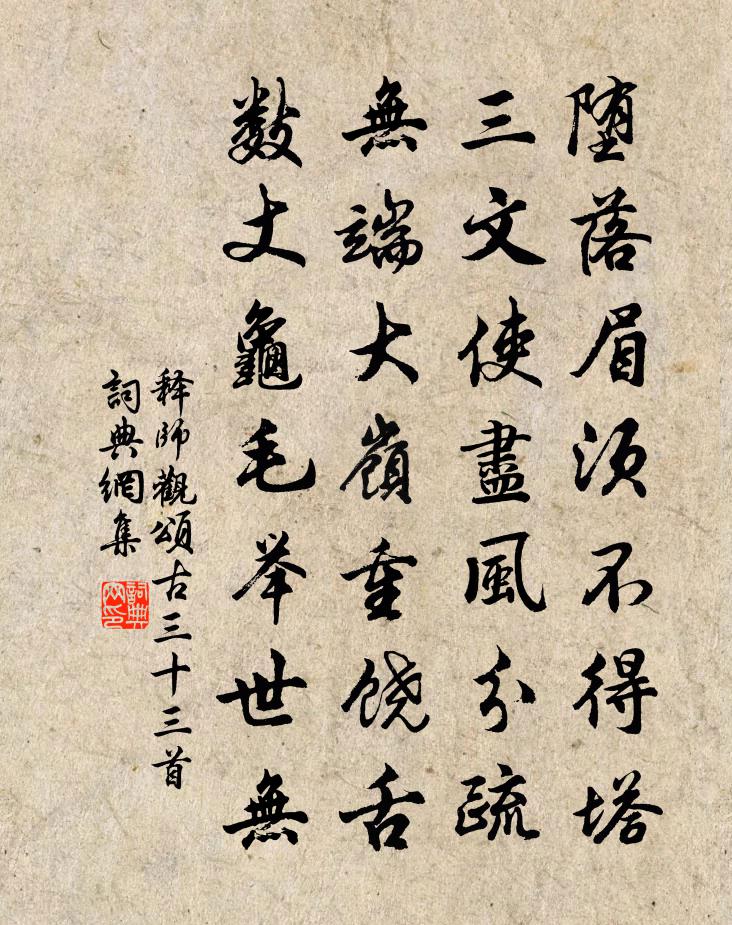 堕落眉须不得塔
三文使盡風分疏
無端大嶺重饶舌
数丈龜毛举世無
释師觀頌古三十三首
詞典網集
詞典網印